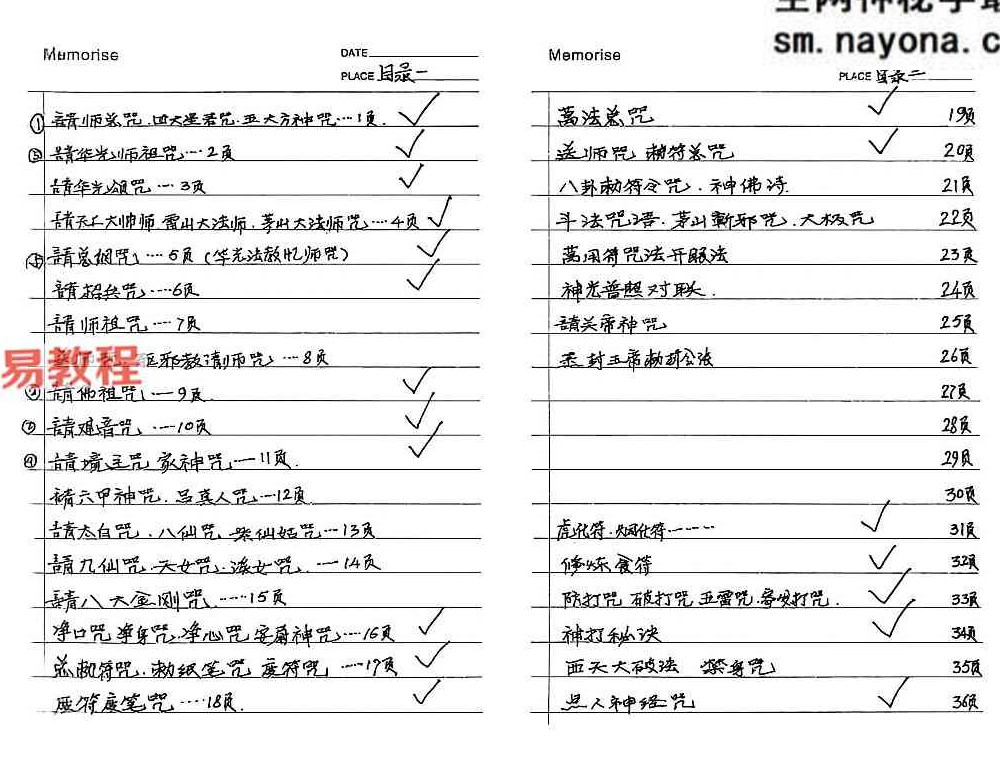 sm.nayona.c
Memorise
DATE
PLACE 目录一
① 請师总咒.四大星君咒.五大方神咒…1页.
請华光师祖咒…2页
請华光頌咒…3页
請天上大帅师.雷山大法师.茅山大法师咒…4页
請总棡咒…5页(华光法教忆师咒)
請招兵咒…6页
請师祖咒…7页
驱邪教演师咒…8页
易教程
請佛祖咒…9页
② 請难音咒…10页
④ 請境主咒 家神咒…11页.
請六甲神咒.吕真人咒…12页
請太白咒.八仙咒.柴仙姑咒…13页
請九仙咒.天女咒.海女咒.…14页
請八大金刚咒…15页
净口咒 净身咒.净心咒 安爵神咒…16页
总勅符咒.勅纸笔咒 度符咒…17页
座符座笔咒…18页.
Memorise
PLACE 目录二
萬法总咒 19页
送师咒 勅符总咒 20页
八卦勅符令咒.神佛诗. 21页
斗法咒语.茅山斬邪咒.太极咒 22页
萬用符咒法开眼法 23页
神光普照对联. 24页
請关帝神咒 25页
封王帝勅封公法 26页
27页
28页
29页
30页
虎化符.烟化符…… 31页
修炼食符 32页
防打咒 破打咒 五雷咒.打咒. 33页
神打秘诀 34页
西天大破法 禁身咒 35页
点人神经咒 36页